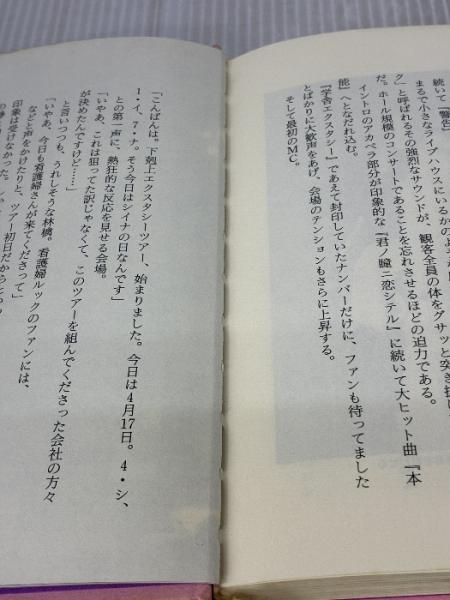 続いて『警告』
まるで小さなライブハウスにいるかのよ
ク』と呼ばれるその強烈なサウンドが、観客全員の体をグサッと突き
だ。ホール規模のコンサートであることを忘れさせるほどの迫力である。
イントロのアカペラ部分が印象的な『君ノ瞳ニ恋シテル』に続いて大ヒット曲『本
能』へとなだれ込む。
『学舎エクスタシー』であえて封印していたナンバーだけに、ファンも待ってました
とばかりに大歓声をあげ、会場のテンションもさらに上昇する。
そして最初のMC。
「こんばんは。下剋上エクスタシーツアー、始まりました。今日は4月17日。4・シ、
1・イ、7・ナ。そう今日はシイナの日なんです」
との第一声に、熱狂的な反応を見せる会場。
「いやあ、これは狙ってた訳じゃなくて、このツアーを組んでくださった会社の方々
が決めたんですけど……」
と言いつつも、うれしそうな林檎。
「いやあ、今日も看護婦さんが来てくださって」
などと声をかけたりと、看護婦ルックのファンには、
印象は受けなかった。ツアー初日だから